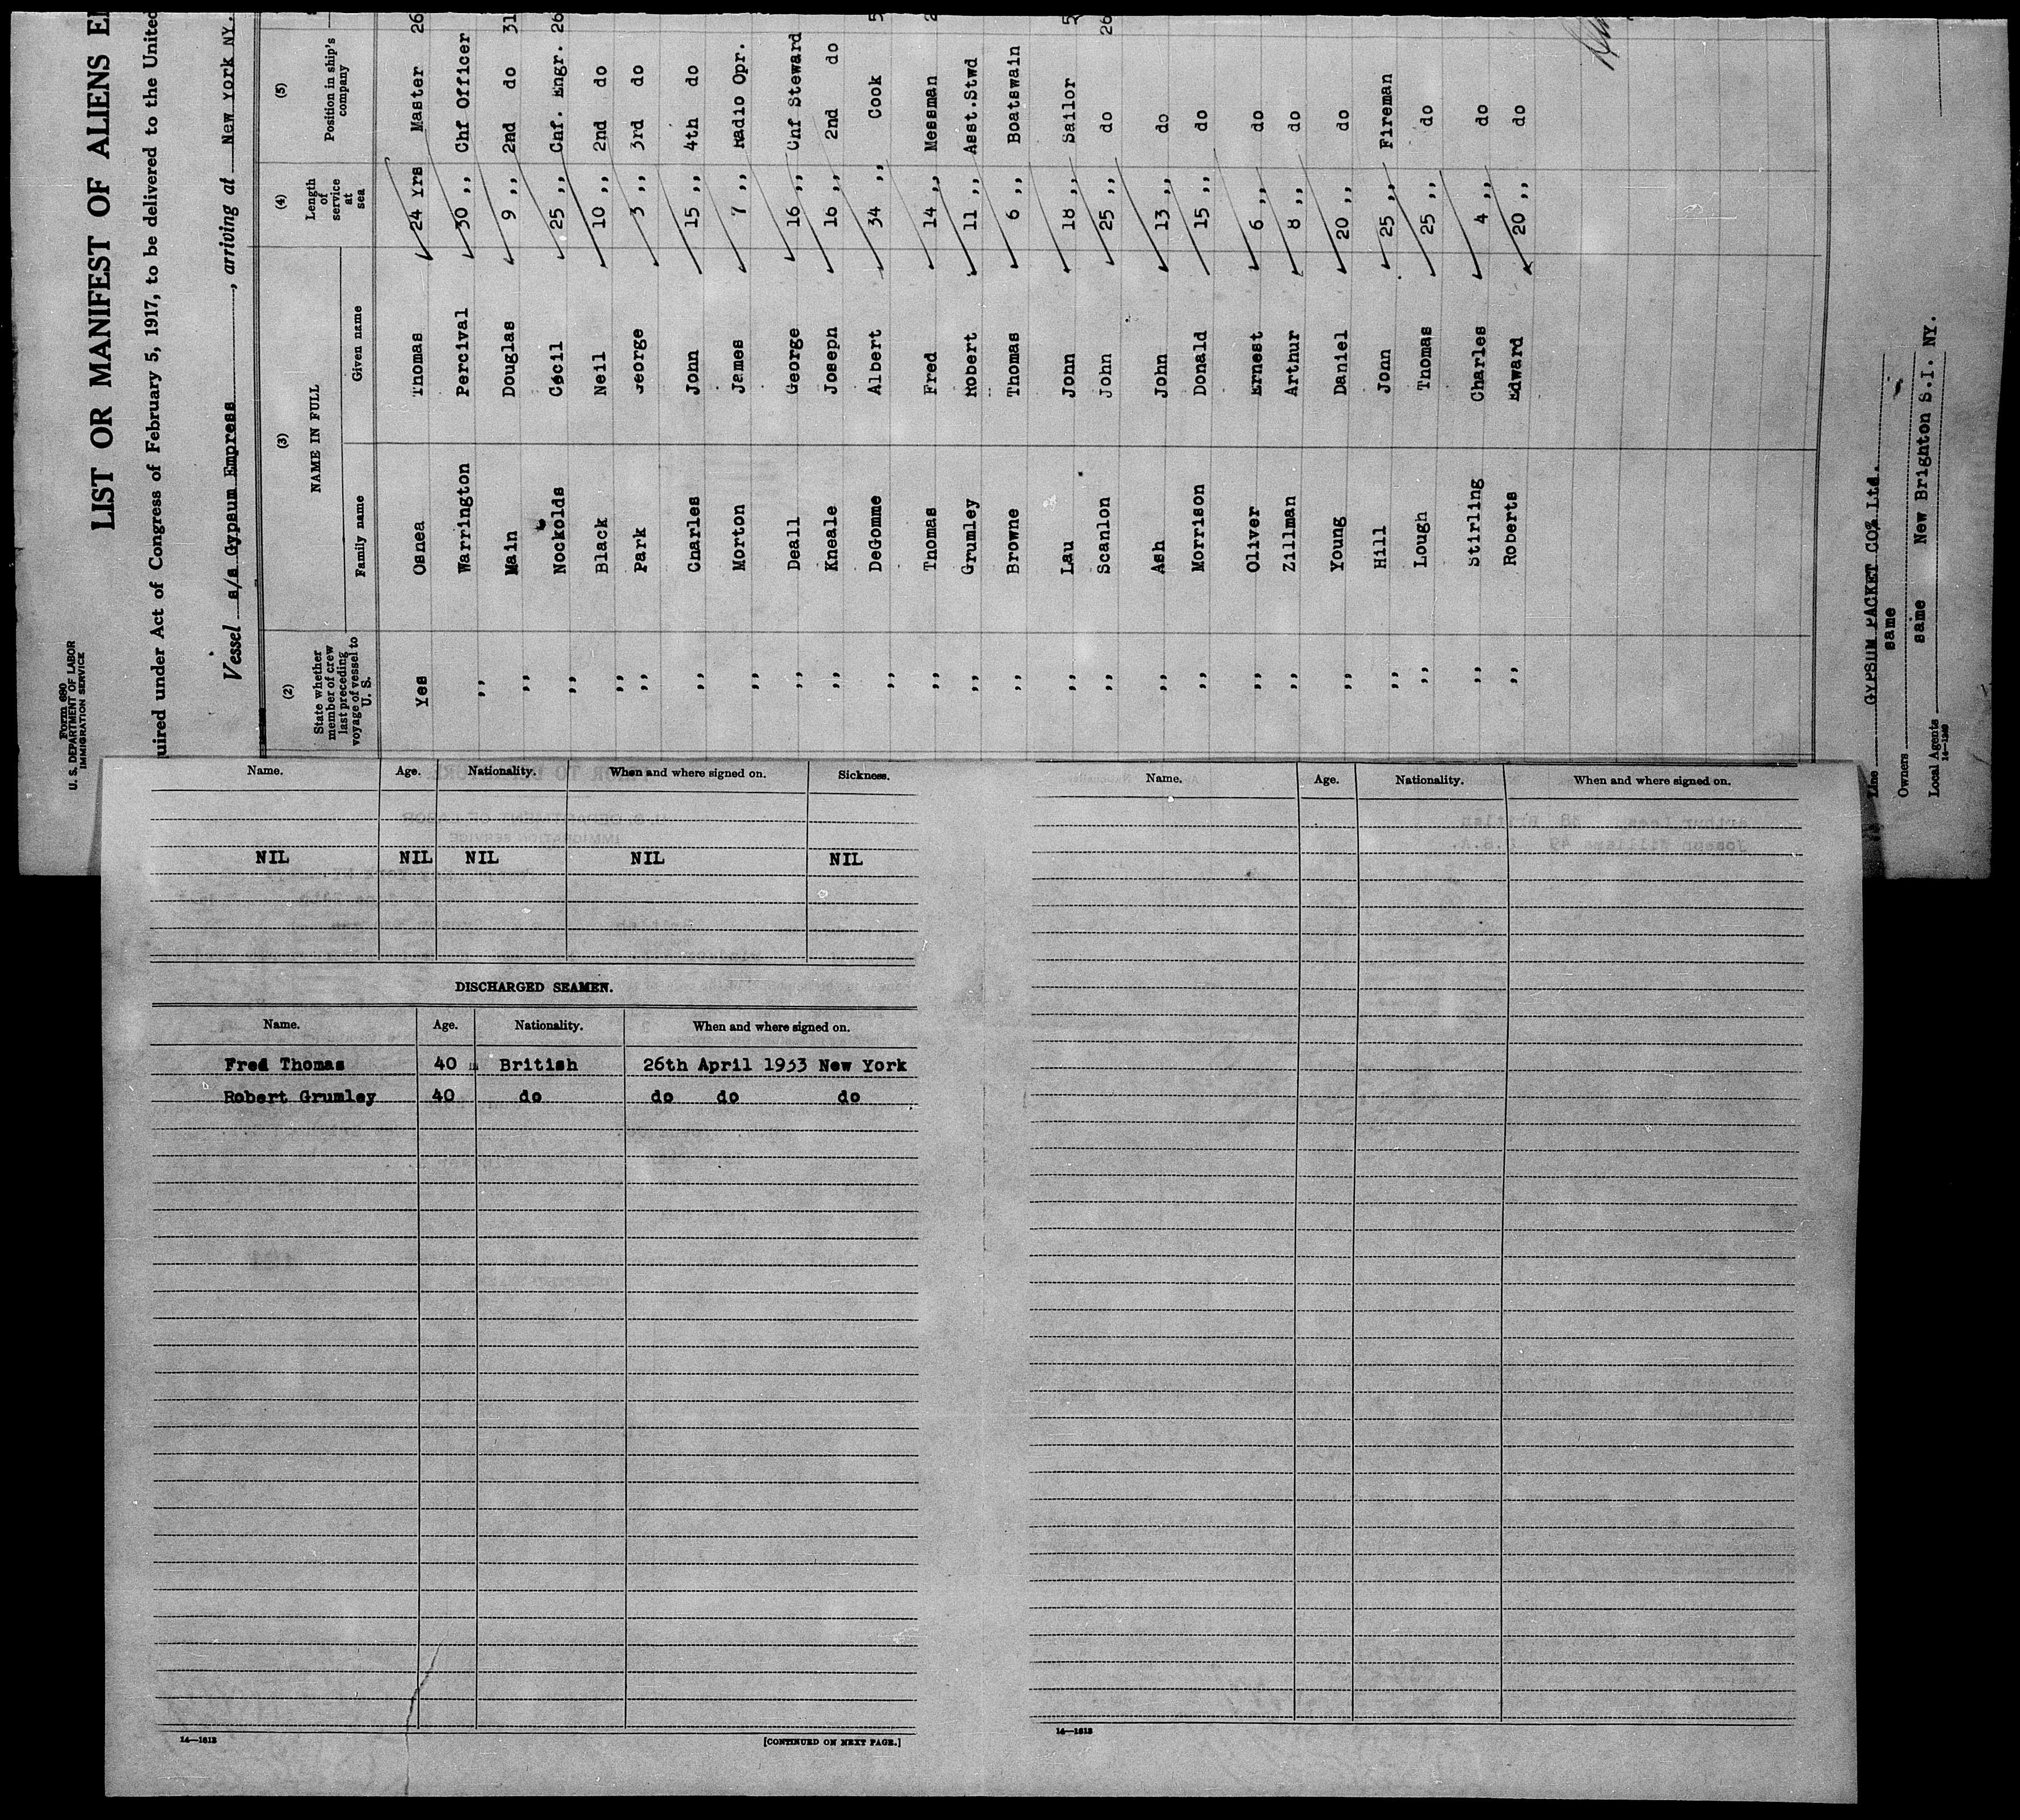 Form 680
U. S. DEPARTMENT OF LABOR
IMMIGRATION SERVICE
LIST OR MANIFEST OF ALIENS
uired under Act of Congress of February 5, 1917, to be delivered to the United
Vessel s/s Gypsum Empress, arriving at New York NY.
(2) (3) (4) (5)
State whether member of crew last preceding voyage of vessel to U. S. NAME IN FULL Length of service at sea Position in ship's company
Family name Given name
Yes Osnea Thomas 24 Yrs Master 26
,, Warrington Percival 30 ,, Chf Officer
,, Main Douglas 9 ,, 2nd do 31
,, Nockolds Cecil 25 ,, Cnf. Engr. 26
,, Black Neil 10 ,, 2nd do
,, Park George 3 ,, 3rd do
,, Charles Jonn 15 ,, 4th do
,, Morton James 7 ,, Radio Opr.
,, Deall George 16 ,, Cnf Steward
,, Kneale Joseph 16 ,, 2nd do
,, DeGomme Albert 34 ,, Cook 5
,, Thomas Fred 14 ,, Messman
,, Grumley Robert 11 ,, Asst.Stwd
,, Browne Thomas 6 ,, Boatswain
,, Lau Jonn 18 ,, Sailor 5
,, Scanlon John 25 ,, do 26
,, Ash John 13 ,, do
,, Morrison Donald 15 ,, do
,, Oliver Ernest 6 ,, do
,, Zillman Arthur 8 ,, do
,, Young Daniel 20 ,, do
,, Hill Jonn 25 ,, Fireman
,, Lough Tnomas 25 ,, do
,, Stirling Charles 4 ,, do
,, Roberts Edward 20 ,, do
Line GYPSUM PACKET CO% Ltd.
Owners same
Local Agents same New Brighton S.I. NY.
14—1240
Name. Age. Nationality. When and where signed on. Sickness.
NIL NIL NIL NIL NIL
DISCHARGED SEAMEN.
Name. Age. Nationality. When and where signed on.
Fred Thomas 40 British 26th April 1933 New York
Robert Grumley 40 do do do do
14—1613
[CONTINUED ON NEXT PAGE.]
Name. Age. Nationality. When and where signed on.
14—1613